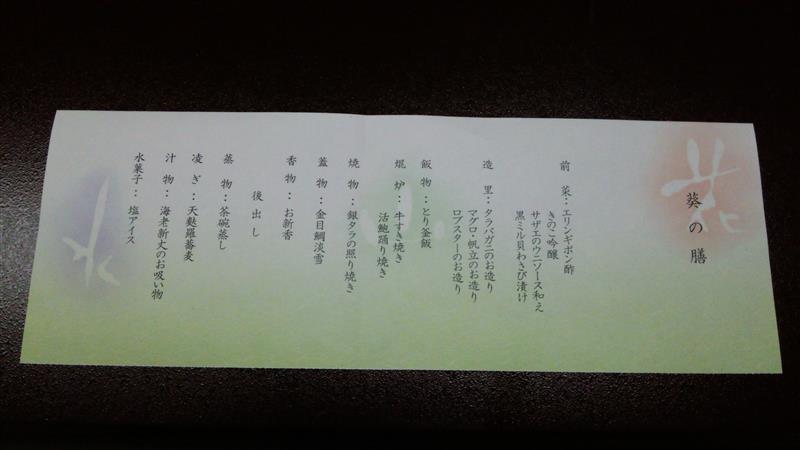 花
葵の膳
前菜：エリンギポン酢
きのこ吟醸
サザエのウニソース和え
黒ミル貝わさび漬け
造里：タラバガニのお造り
マグロ・帆立のお造り
ロブスターのお造り
飯物：とり釜飯
焜炉：牛すき焼き
活鮑踊り焼き
焼物：銀タラの照り焼き
蓋物：金目鯛淡雪
香物：お新香
後出し
蒸物：茶碗蒸し
凌ぎ：天麩羅蕎麦
汁物：海老新丈のお吸い物
水菓子：塩アイス
水